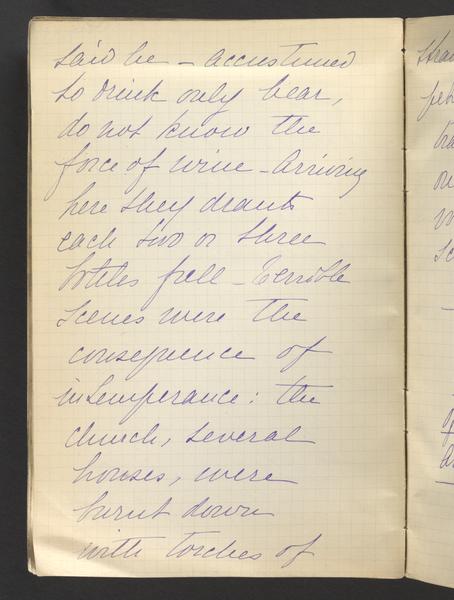 said he - accustumed
to drink only bear,
do not know the
force of wine - Arriving
here they drank
each two or three
bottles full - Terrible
scenes were the
consequence of
intemperance: the
church, several
houses, were
burnt down
with torches of